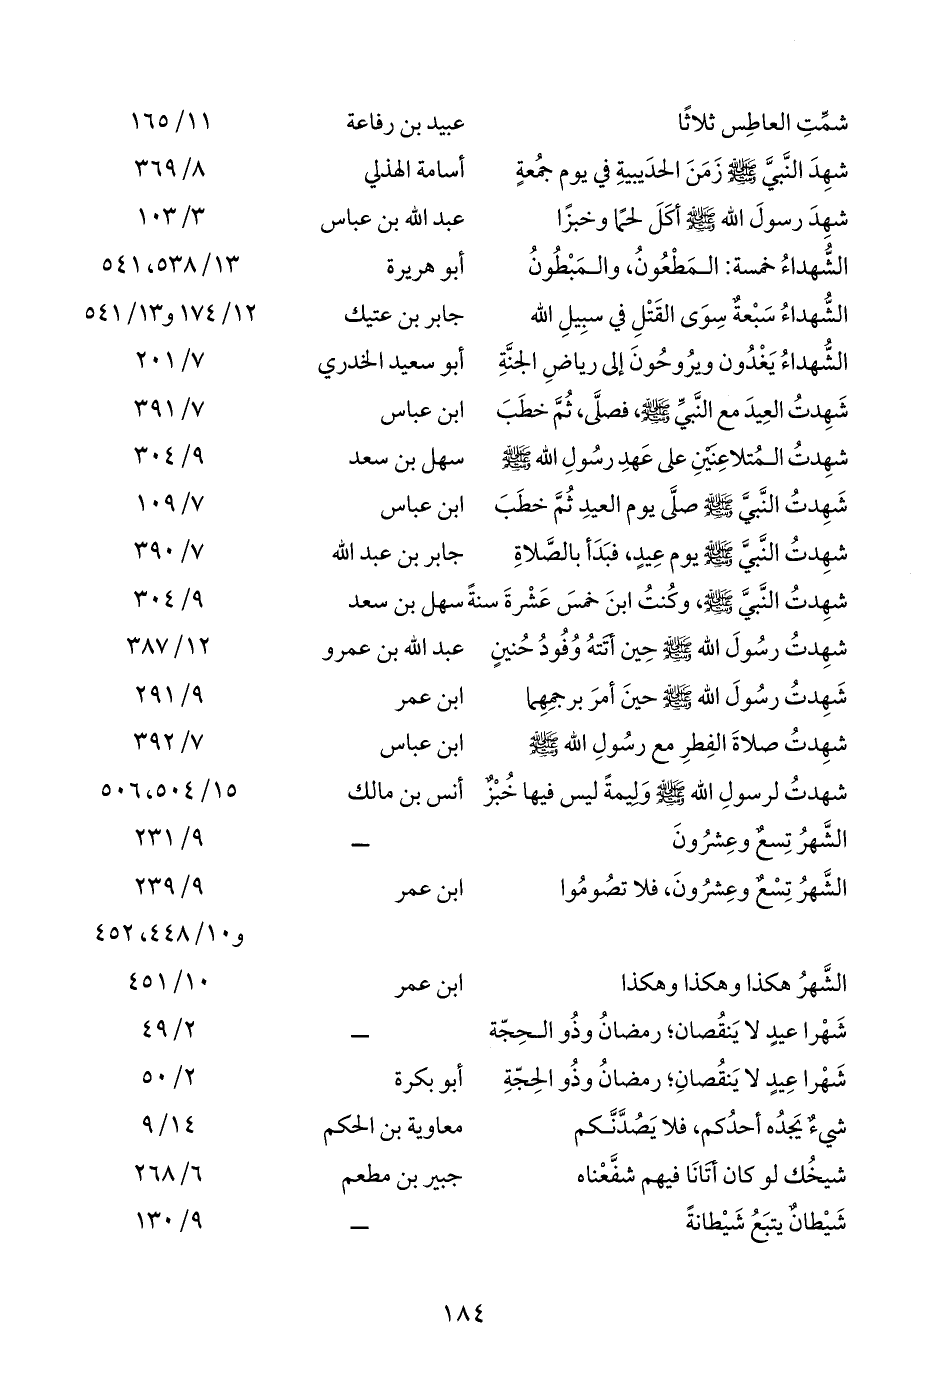 شمِّتِ العاطِس ثلاثًا عبيد بن رفاعة ١١/ ١٦٥
شهِدَ النَّبيَّ ﷺ زَمَنَ الحدَيبيةِ في يوم جمُعةٍ أسامة الهذلي ٨/ ٣٦٩
شهِدَ رسولَ الله ﷺ أكَلَ لحمًا وخبزًا عبد الله بن عباس ٣/ ١٠٣
الشُّهداءُ خمسة: الـمَطْعُونُ، والـمَبْطُونُ أبو هريرة ١٣/ ٥٣٨، ٥٤١
الشُّهداءُ سَبْعةٌ سِوَى القَتْلِ في سبِيلِ الله جابر بن عتيك ١٢/ ١٧٤ و١٣/ ٥٤١
الشُّهداءُ يَغْدُون ويرُوحُونَ إلى رياضِ الجنَّةِ أبو سعيد الخدري ٧/ ٢٠١
شَهِدتُ العِيدَ مع النَّبيِّ ﷺ، فصلَّى، ثُمَّ خطَبَ ابن عباس ٧/ ٣٩١
شهِدتُ الـمُتلاعِنَيْنِ على عَهدِ رسُولِ الله ﷺ سهل بن سعد ٩/ ٣٠٤
شَهِدتُ النَّبيَّ ﷺ صلَّى يوم العيدِ ثُمَّ خطَبَ ابن عباس ٧/ ١٠٩
شهِدتُ النَّبيَّ ﷺ يوم عِيدٍ، فبَدَأ بالصَّلاةِ جابر بن عبد الله ٧/ ٣٩٠
شهِدتُ النَّبيَّ ﷺ، وكُنتُ ابنَ خمسَ عَشْرةَ سنةً سهل بن سعد ٩/ ٣٠٤
شهِدتُ رسُولَ الله ﷺ حِين أتَتهُ وُفُودُ حُنينٍ عبد الله بن عمرو ١٢/ ٣٨٧
شَهِدتُ رسُولَ الله ﷺ حينَ أمرَ برجمِهِما ابن عمر ٩/ ٢٩١
شهِدتُ صلاةَ الفِطرِ مع رسُولِ الله ﷺ ابن عباس ٧/ ٣٩٢
شهدتُ لرسولِ الله ﷺ وَلِيمةً ليس فيها خُبْزٌ أنس بن مالك ١٥/ ٥٠٤، ٥٠٦
الشَّهرُ تِسعٌ وعِشرُونَ ــ ٩/ ٢٣١
الشَّهرُ تِسْعٌ وعِشرُونَ، فلا تصُومُوا ابن عمر ٩/ ٢٣٩
و١٠/ ٤٤٨، ٤٥٢
الشَّهرُ هكذا وهكذا وهكذا ابن عمر ١٠/ ٤٥١
شَهْرا عيدٍ لا يَنقُصان؛ رمضانُ وذُو الـحِجّة ــ ٢/ ٤٩
شَهْرا عِيدٍ لا يَنقُصانِ؛ رمضانُ وذُو الحِجّةِ أبو بكرة ٢/ ٥٠
شيءٌ يَجدُه أحدُكم، فلا يَصُدَّنَّـكم معاوية بن الحكم ١٤/ ٩
شيخُك لو كان أتَانَا فيهم شفَّعْناه جبير بن مطعم ٦/ ٢٦٨
شَيْطانٌ يتبَعُ شَيْطانةً ــ ٩/ ١٣٠
١٨٤